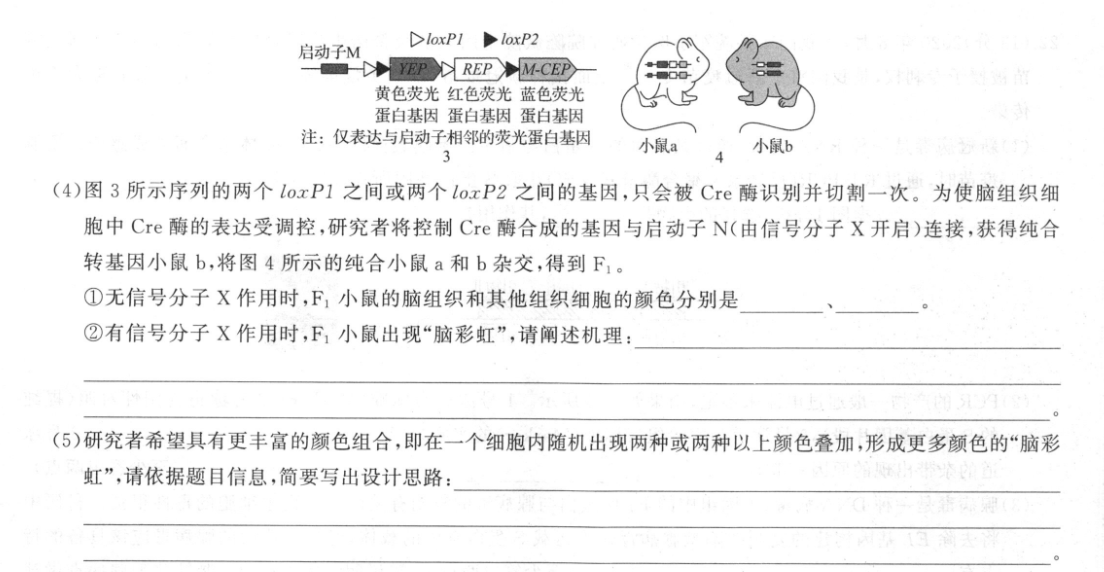 ▷loxP1 ▶loxP2
启动子M
YEP REP M-CEP
黄色荧光 红色荧光 蓝色荧光
蛋白基因 蛋白基因 蛋白基因
注：仅表达与启动子相邻的荧光蛋白基因
3
小鼠a 小鼠b
4
(4)图 3 所示序列的两个 loxP1 之间或两个 loxP2 之间的基因,只会被 Cre 酶识别并切割一次。为使脑组织细
胞中 Cre 酶的表达受调控,研究者将控制 Cre 酶合成的基因与启动子 N(由信号分子 X 开启)连接,获得纯合
转基因小鼠 b,将图 4 所示的纯合小鼠 a 和 b 杂交,得到 F₁。
①无信号分子 X 作用时,F₁ 小鼠的脑组织和其他组织细胞的颜色分别是________、________。
②有信号分子 X 作用时,F₁ 小鼠出现“脑彩虹”,请阐述机理:________
。
(5)研究者希望具有更丰富的颜色组合,即在一个细胞内随机出现两种或两种以上颜色叠加,形成更多颜色的“脑彩
虹”,请依据题目信息,简要写出设计思路:________
。